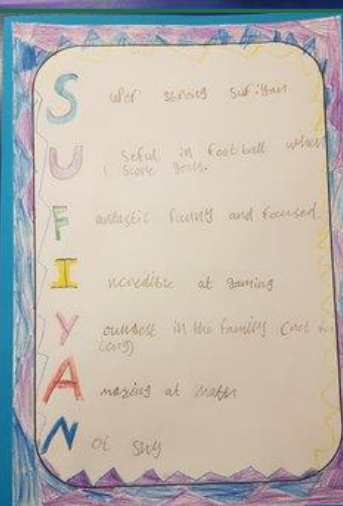 S uper strong Sufiyan
U seful in football when
I score goals.
F antastic family and focused
I ncredible at gaming
Y oungest in the family (not for
long)
A mazing at maths
N ot shy